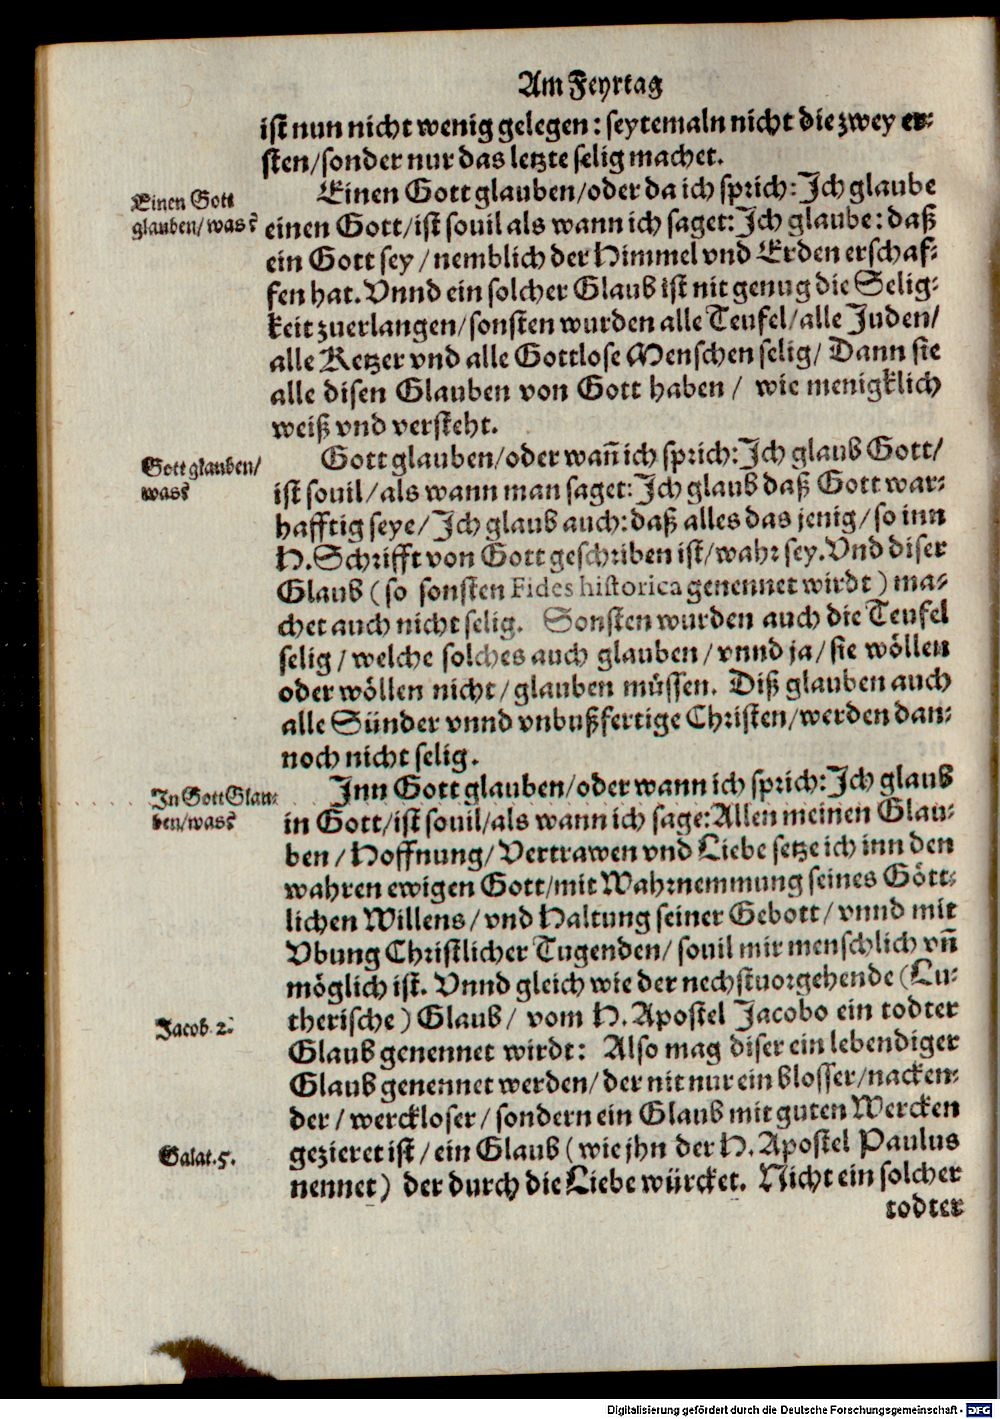 Am Feyrtag
ist nun nicht wenig gelegen: seytemaln nicht die zwey er-
sten/sonder nur das letzte selig machet.
Einen Gott
glauben/was?
Einen Gott glauben/oder da ich sprich: Ich glaube
einen Gott/ist souil als wann ich saget: Ich glaube: daß
ein Gott sey/nemblich der Himmel vnd Erden erschaf-
fen hat. Vnnd ein solcher Glaub ist nit genug die Selig-
keit zuerlangen/sonsten wurden alle Teufel/alle Juden/
alle Ketzer vnd alle Gottlose Menschen selig/ Dann sie
alle disen Glauben von Gott haben/ wie menigklich
weiß vnd versteht.
Gott glauben/
was?
Gott glauben/oder wañ ich sprich: Ich glaub Gott/
ist souil/als wann man saget: Ich glaub daß Gott war-
hafftig seye/Ich glaub auch: daß alles das jenig/so inn
H. Schrifft von Gott geschriben ist/wahr sey. Vnd diser
Glaub (so sonsten Fides historica genennet wirdt) ma-
chet auch nicht selig. Sonsten wurden auch die Teufel
selig/welche solches auch glauben/vnnd ja/sie wöllen
oder wöllen nicht/glauben müssen. Diß glauben auch
alle Sünder vnnd vnbußfertige Christen/werden dan-
noch nicht selig.
In Gott Glau-
ben/was?
Inn Gott glauben/oder wann ich sprich: Ich glaub
in Gott/ist souil/als wann ich sage: Allen meinen Glau-
ben/Hoffnung/Vertrawen vnd Liebe setze ich inn den
wahren ewigen Gott/mit Wahrnemmung seines Gött-
lichen Willens/vnd Haltung seiner Gebott/vnnd mit
Vbung Christlicher Tugenden/souil mir menschlich vñ
möglich ist. Vnnd gleich wie der nechstuorgehende (Lu-
Jacob 2.
therische) Glaub/ vom H. Apostel Jacobo ein todter
Glaub genennet wirdt: Also mag diser ein lebendiger
Glaub genennet werden/der nit nur ein blosser/nacken-
der/werckloser/sondern ein Glaub mit guten Wercken
Galat. 5.
gezieret ist/ein Glaub (wie jhn der H. Apostel Paulus
nennet) der durch die Liebe würcket. Nicht ein solcher
todter
Digitalisierung gefördert durch die Deutsche Forschungsgemeinschaft - DFG